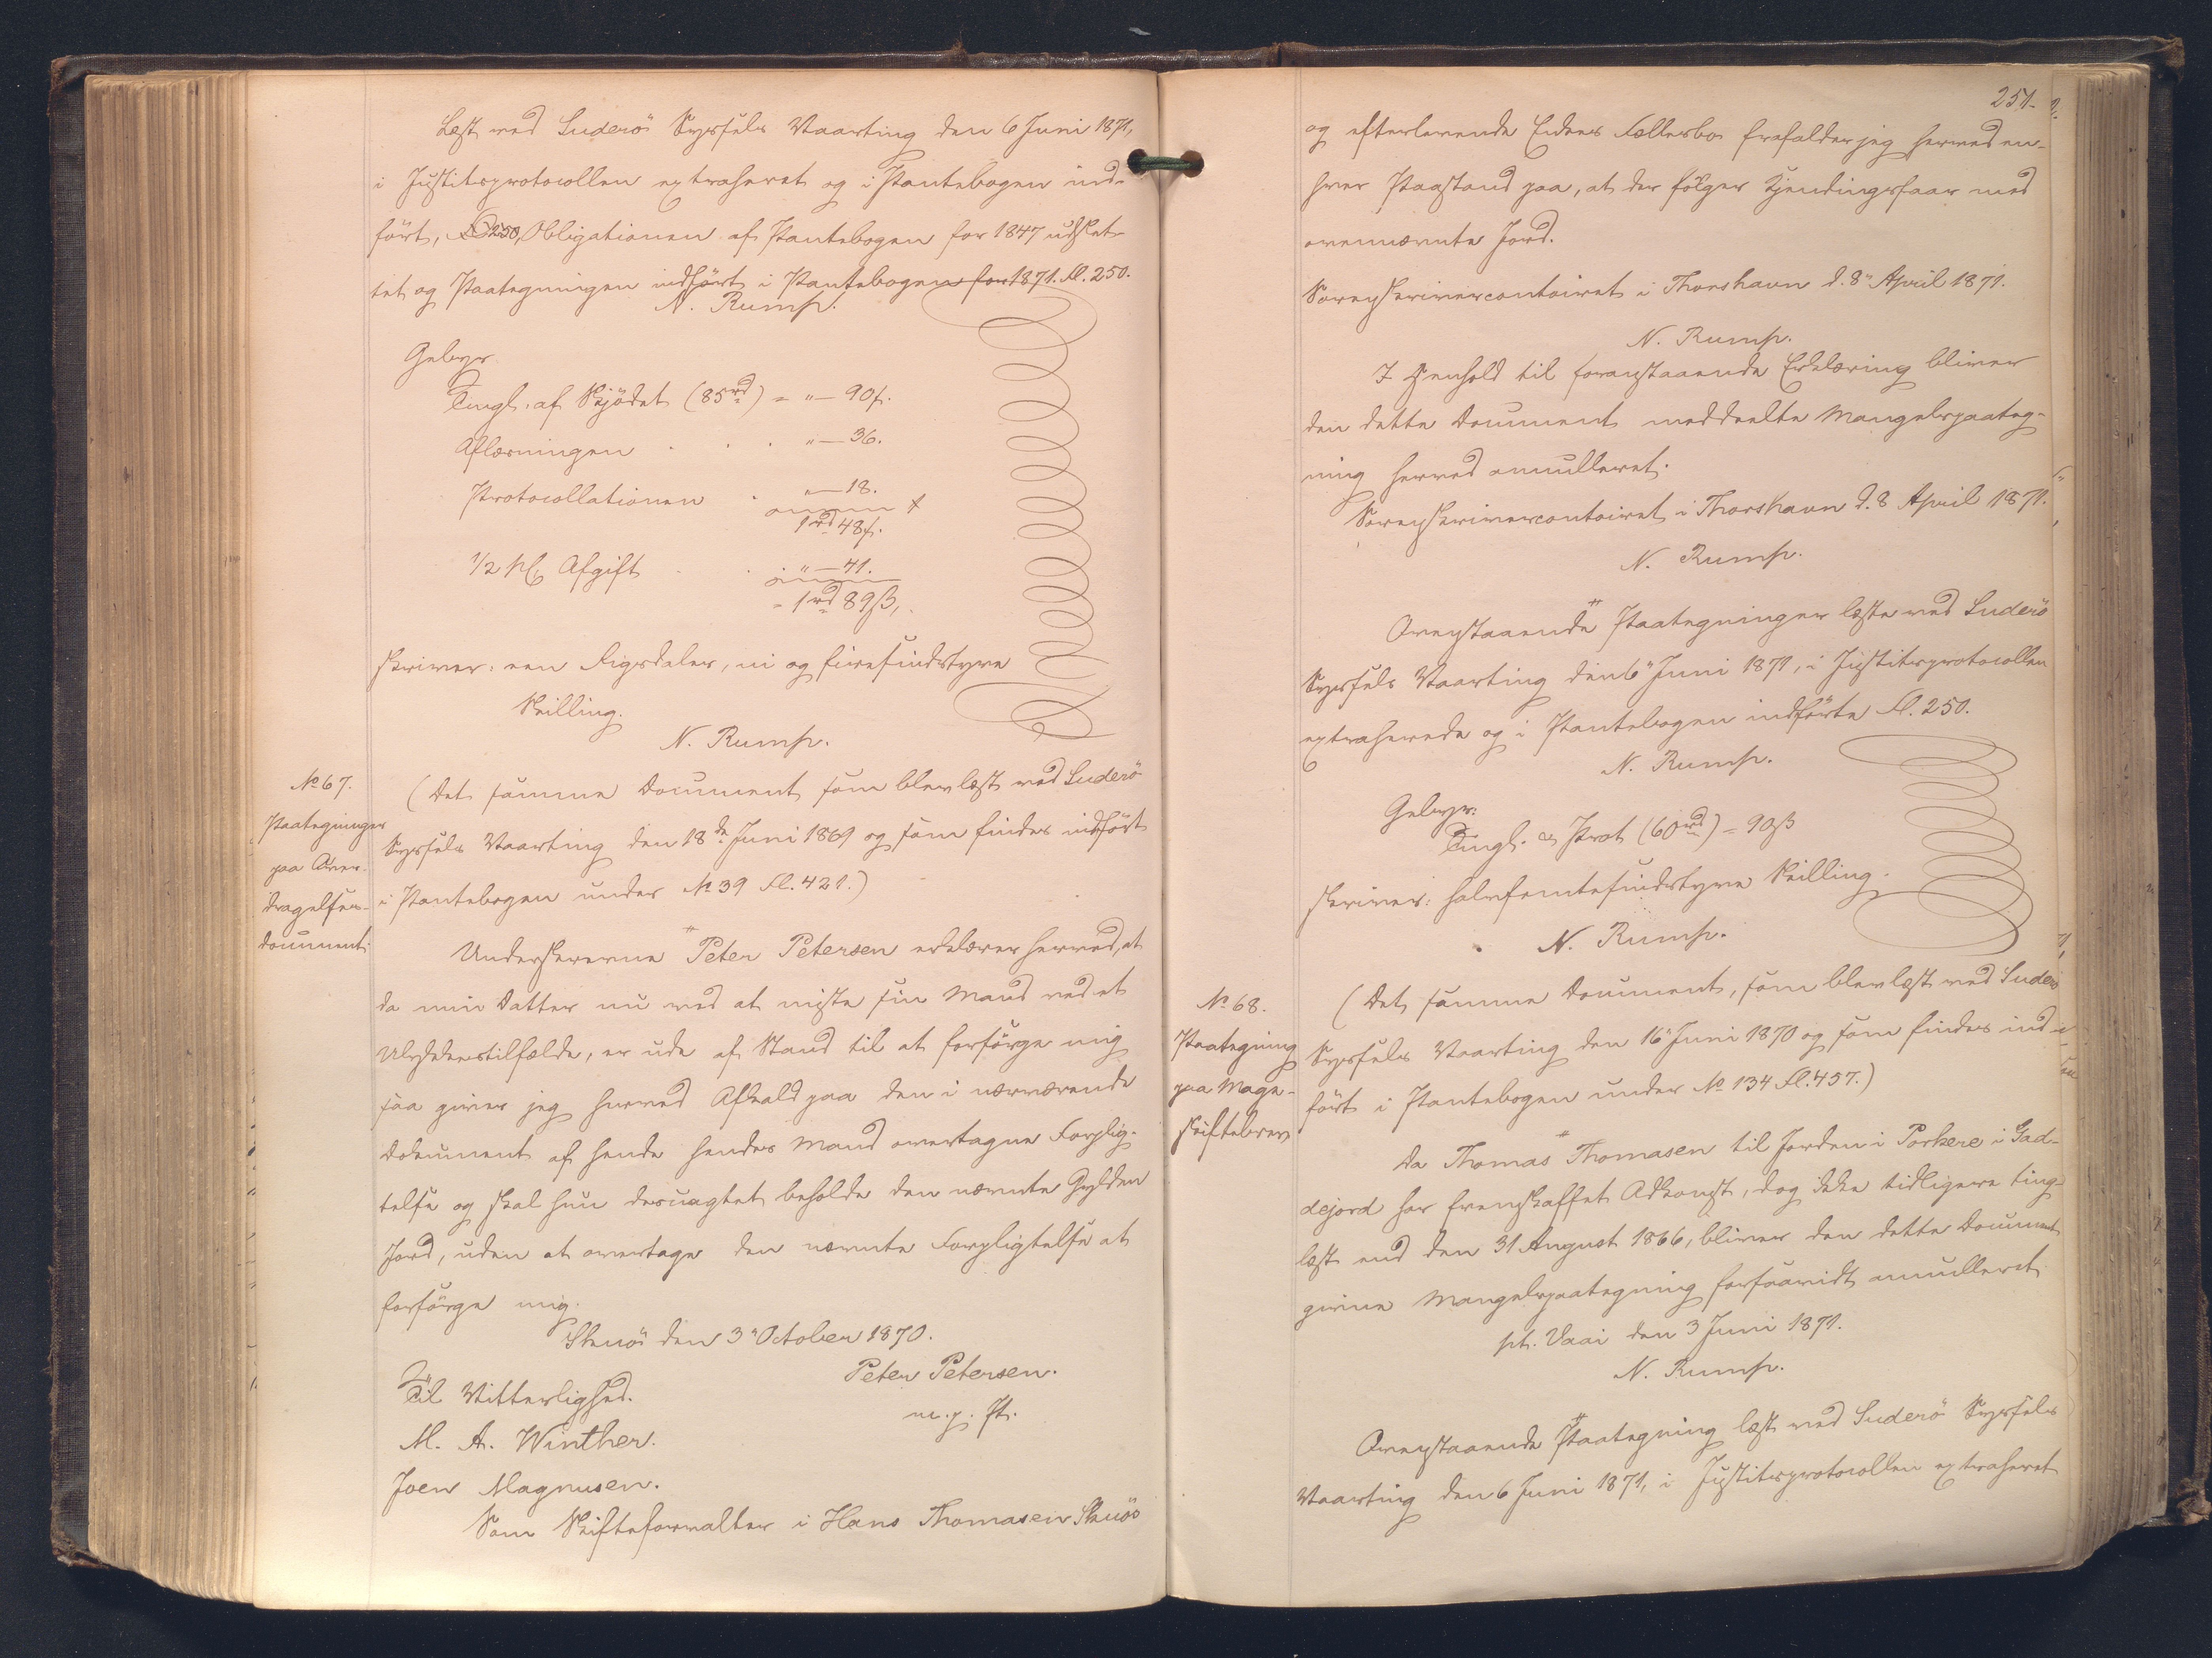 Læst ved Suderö Syssels Vaarting den 6 Juni 1871,
i Justitsprotocollen extraheret og i Pantebogen ind-
ført, Obligationen af Pantebogen for 1847 udslet-
tet og Paategningen indført i Pantebogen for 1871. Fl. 250.
N. Rump.
Gebyr
Tingl. af Skjödet (85rd) = " — 90 f.
Aflæsningen . . . " — 36.
Protocollationen . " — 18.
1rd 48 f.
1/2 pCt Afgift . . " — 41.
= 1rd 89 ß,
skriver: een Rigsdaler, ni og firesindstyve
Skilling.
N. Rump.
No 67.
Paategninger
paa Over-
dragelses-
document
(Det samme Document som blev læst ved Suderö
Syssels Vaarting den 18de Juni 1869 og som findes indført
i Pantebogen under No 39 Fl. 421.)
Underskrevne Peter Petersen erklærer herved, at
da min Datter nu ved at miste sin Mand ved et
Ulykkestilfælde, er ude af Stand til at forsörge mig
saa giver jeg herved Afkald paa den i nærværende
Dokument af hende hendes Mand overtagne Forplig-
telse og skal hun desuagtet beholde den nævnte Gylden
Jord, uden at overtage den nævnte Forpligtelse at
forsörge mig.
Skuö den 3 October 1870.
Peter Petersen.
m. p. P.
Til Vitterlighed.
M. A. Winther.
Joen Magnusen.
Som Skifteforvalter i Hans Thomasen Skuös
251.
og efterlevende Enkes Fællesbo frafalder jeg herved en-
hver Paastand paa, at der fölger Kjendingsfaar med
ovennævnte Jord.
Sorenskrivercontoiret i Thorshavn d. 8 April 1871.
N. Rump.
I Henhold til foranstaaende Erklæring bliver
den dette Document meddeelte Mangelspaateg-
ning herved annulleret.
Sorenskrivercontoiret i Thorshavn d. 8 April 1871.
N. Rump.
Ovenstaaende Paategninger læste ved Suderö
Syssels Vaarting den 6 Juni 1871, i Justitsprotocollen
extraherede og i Pantebogen indførte Fl. 250.
N. Rump.
Gebyr:
Tingl. & Prot (60rd) = 90 ß
skriver: halvfemtesindstyve Skilling.
N. Rump.
No 68.
Paategning
paa Mage-
skiftebrev
(Det samme Document, som blev læst ved Suderö
Syssels Vaarting den 16 Juni 1870 og som findes ind-
ført i Pantebogen under No 134 Fl. 457.)
Da Thomas Thomasen til Jorden i Porkere i Gad-
dejord har fremskaffet Adkomst, dog ikke tidligere ting-
læst end den 31 August 1866, bliver den dette Document
givne Mangelspaategning forsaavidt annulleret
pt. Vaai den 3 Juni 1871.
N. Rump.
Ovenstaaende Paategning læst ved Suderö Syssels
Vaarting den 6 Juni 1871, i Justitsprotocollen extraheret